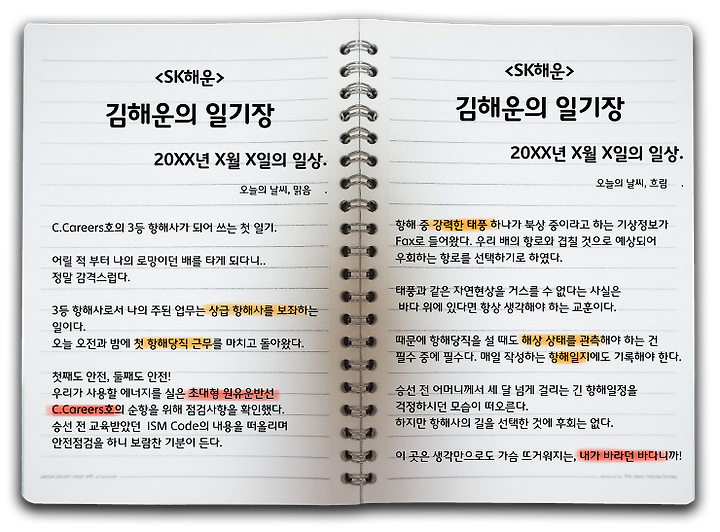 <SK해운>
김해운의 일기장
20XX년 X월 X일의 일상.
오늘의 날씨, 맑음 .
C.Careers호의 3등 항해사가 되어 쓰는 첫 일기.
어릴 적 부터 나의 로망이던 배를 타게 되다니..
정말 감격스럽다.
3등 항해사로서 나의 주된 업무는 상급 항해사를 보좌하는
일이다.
오늘 오전과 밤에 첫 항해당직 근무를 마치고 돌아왔다.
첫째도 안전, 둘째도 안전!
우리가 사용할 에너지를 실은 초대형 원유운반선
C.Careers호의 순항을 위해 점검사항을 확인했다.
승선 전 교육받았던 ISM Code의 내용을 떠올리며
안전점검을 하니 보람찬 기분이 든다.
<SK해운>
김해운의 일기장
20XX년 X월 X일의 일상.
오늘의 날씨, 흐림 .
항해 중 강력한 태풍 하나가 북상 중이라고 하는 기상정보가
Fax로 들어왔다. 우리 배의 항로와 겹칠 것으로 예상되어
우회하는 항로를 선택하기로 하였다.
태풍과 같은 자연현상을 거스를 수 없다는 사실은
바다 위에 있다면 항상 생각해야 하는 교훈이다.
때문에 항해당직을 설 때도 해상 상태를 관측해야 하는 건
필수 중에 필수다. 매일 작성하는 항해일지에도 기록해야 한다.
승선 전 어머니께서 세 달 넘게 걸리는 긴 항해일정을
걱정하시던 모습이 떠오른다.
하지만 항해사의 길을 선택한 것에 후회는 없다.
이 곳은 생각만으로도 가슴 뜨거워지는, 내가 바라던 바다니까!